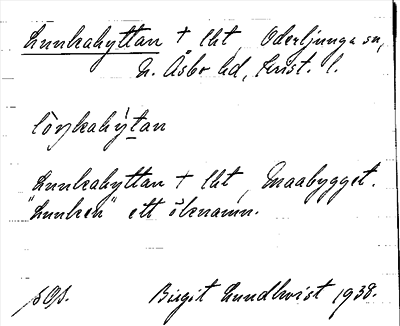 Lunkahyttan + lht, Oderljunga sn,
N. Åsbo hd, Krist. l.
lòŋkahýtan
Lunkahyttan + lht, Maabygget.
"Lunken" ett öknamn.
Birgit Lundkvist 1938.